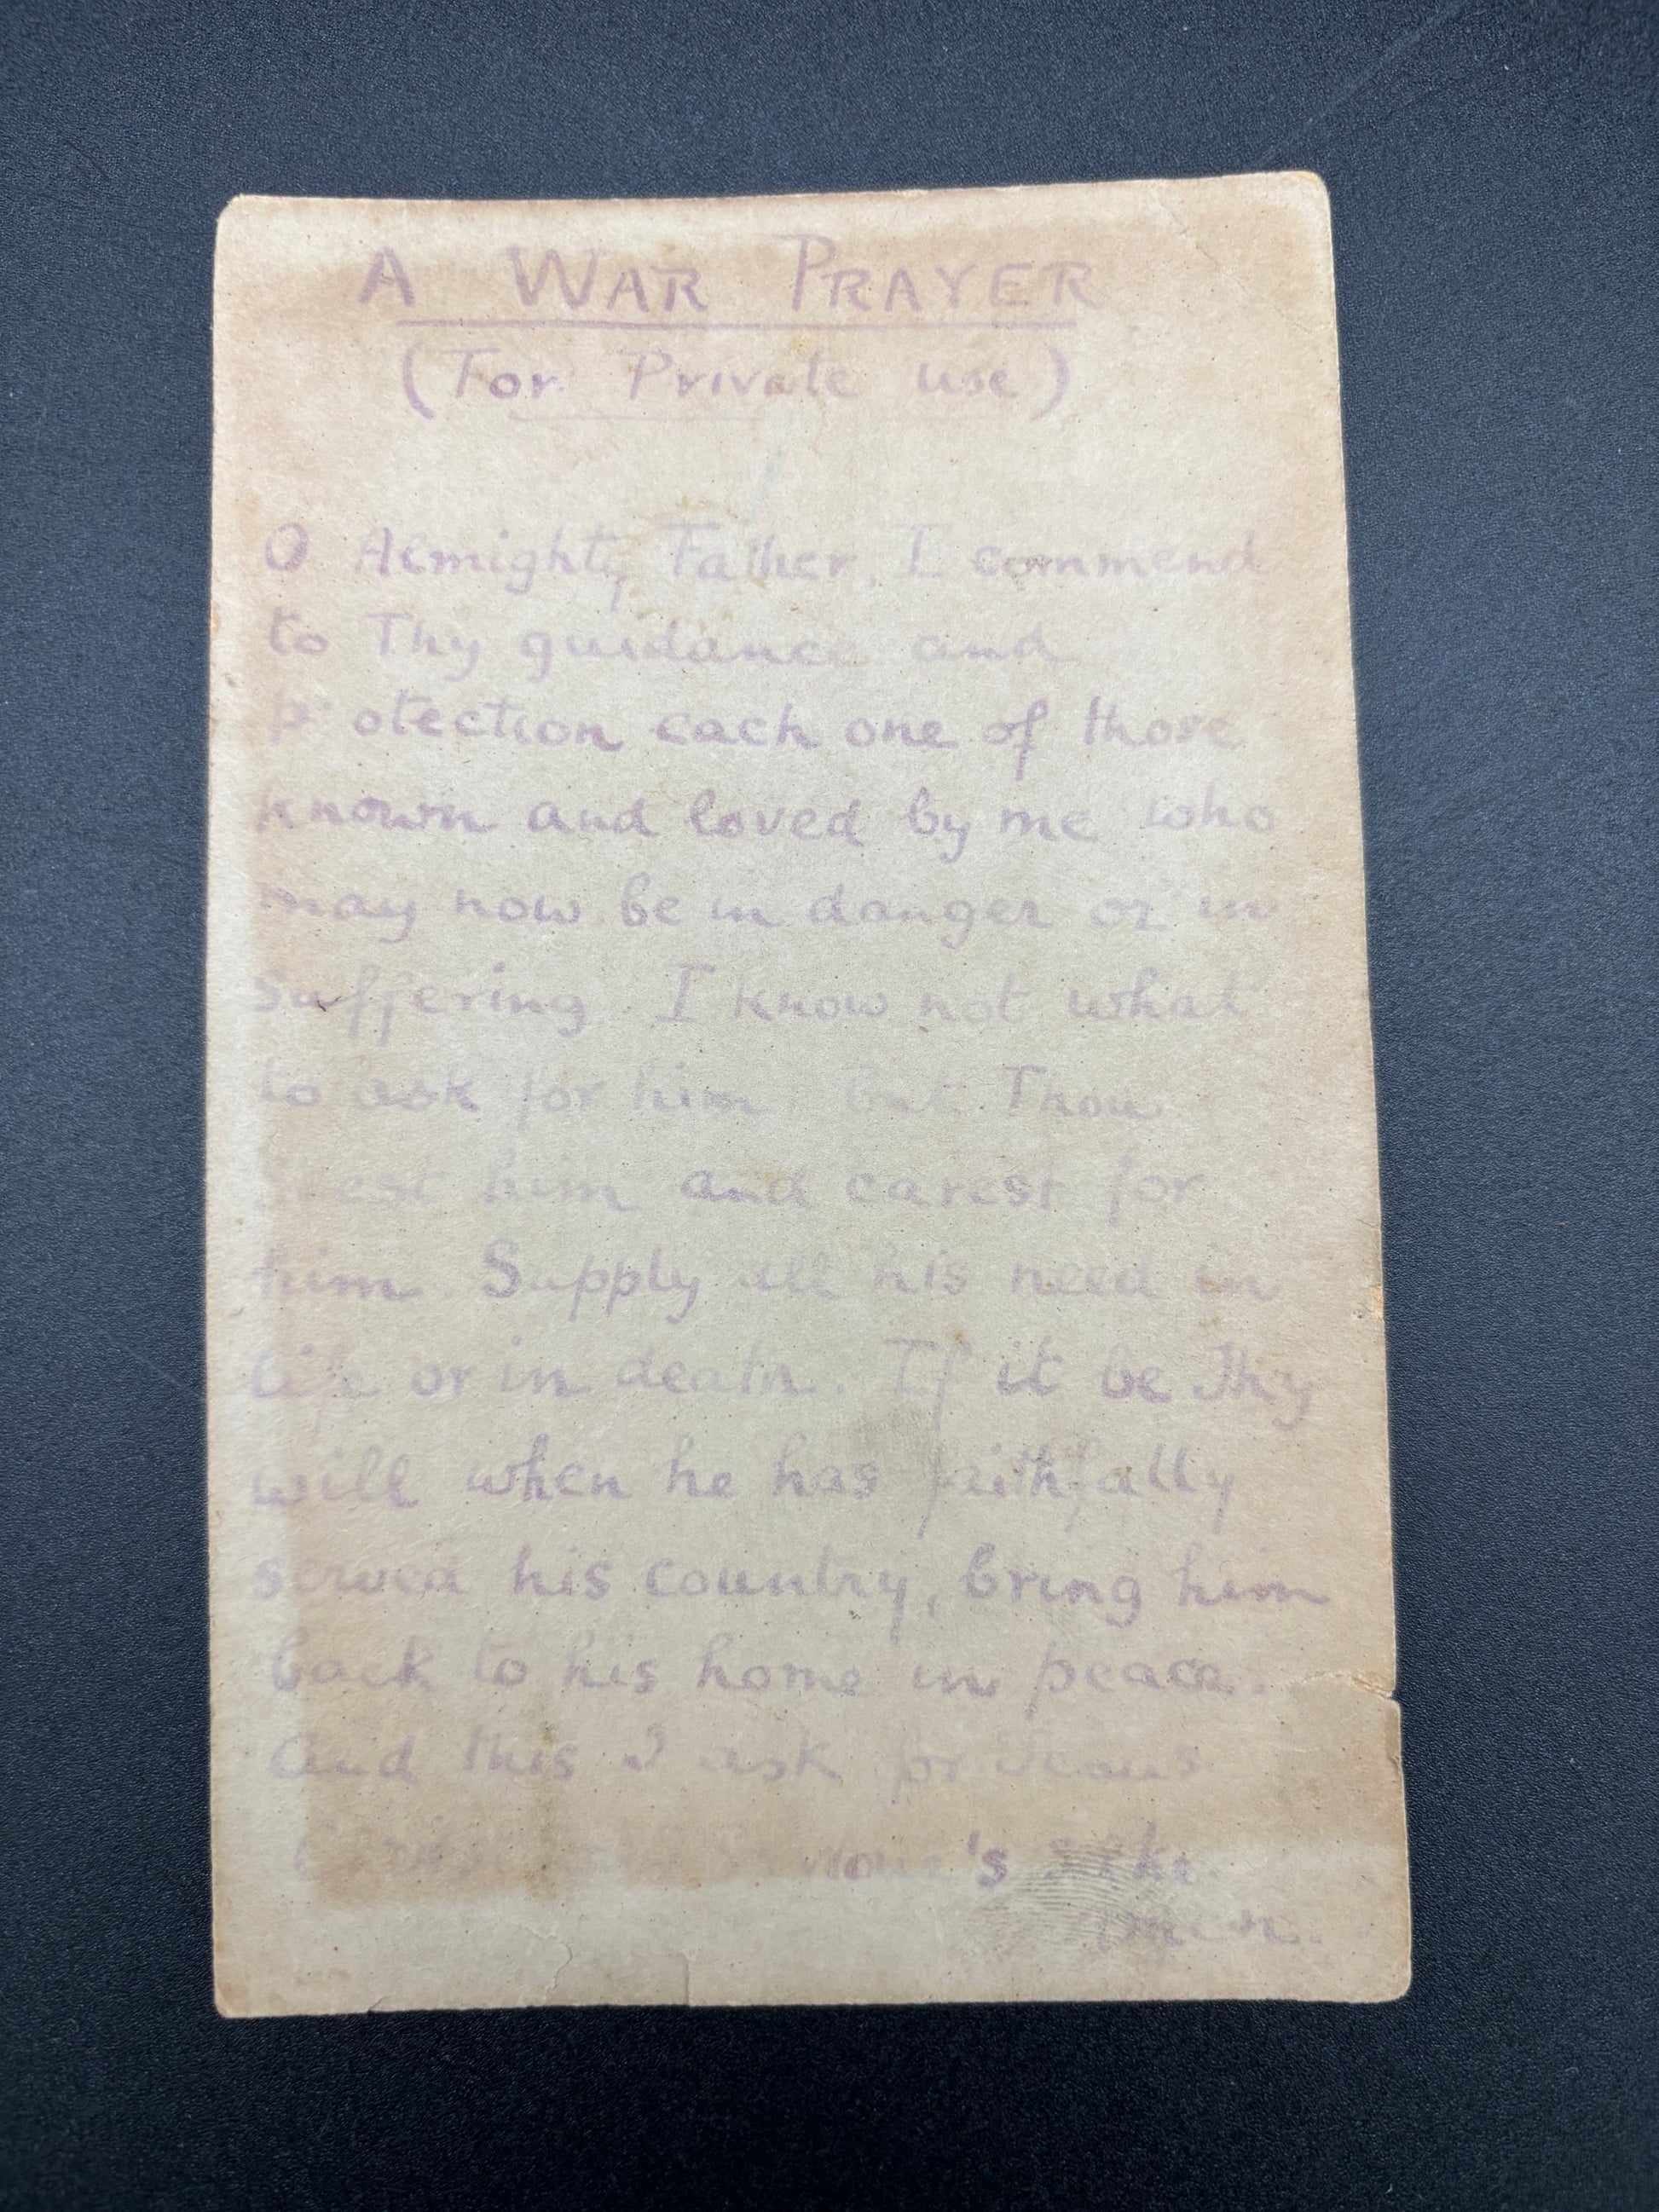 A WAR PRAYER
(For Private use)
O Almighty Father, I commend
to Thy guidance and
protection each one of those
known and loved by me who
may now be in danger or in
suffering I know not what
to ask for him but Thou
him and carest for
him. Supply all his need in
life or in death. If it be Thy
will when he has faithfully
served his country, bring him
back to his home in peace.
And this I ask for Jesus
's sake.
Amen.